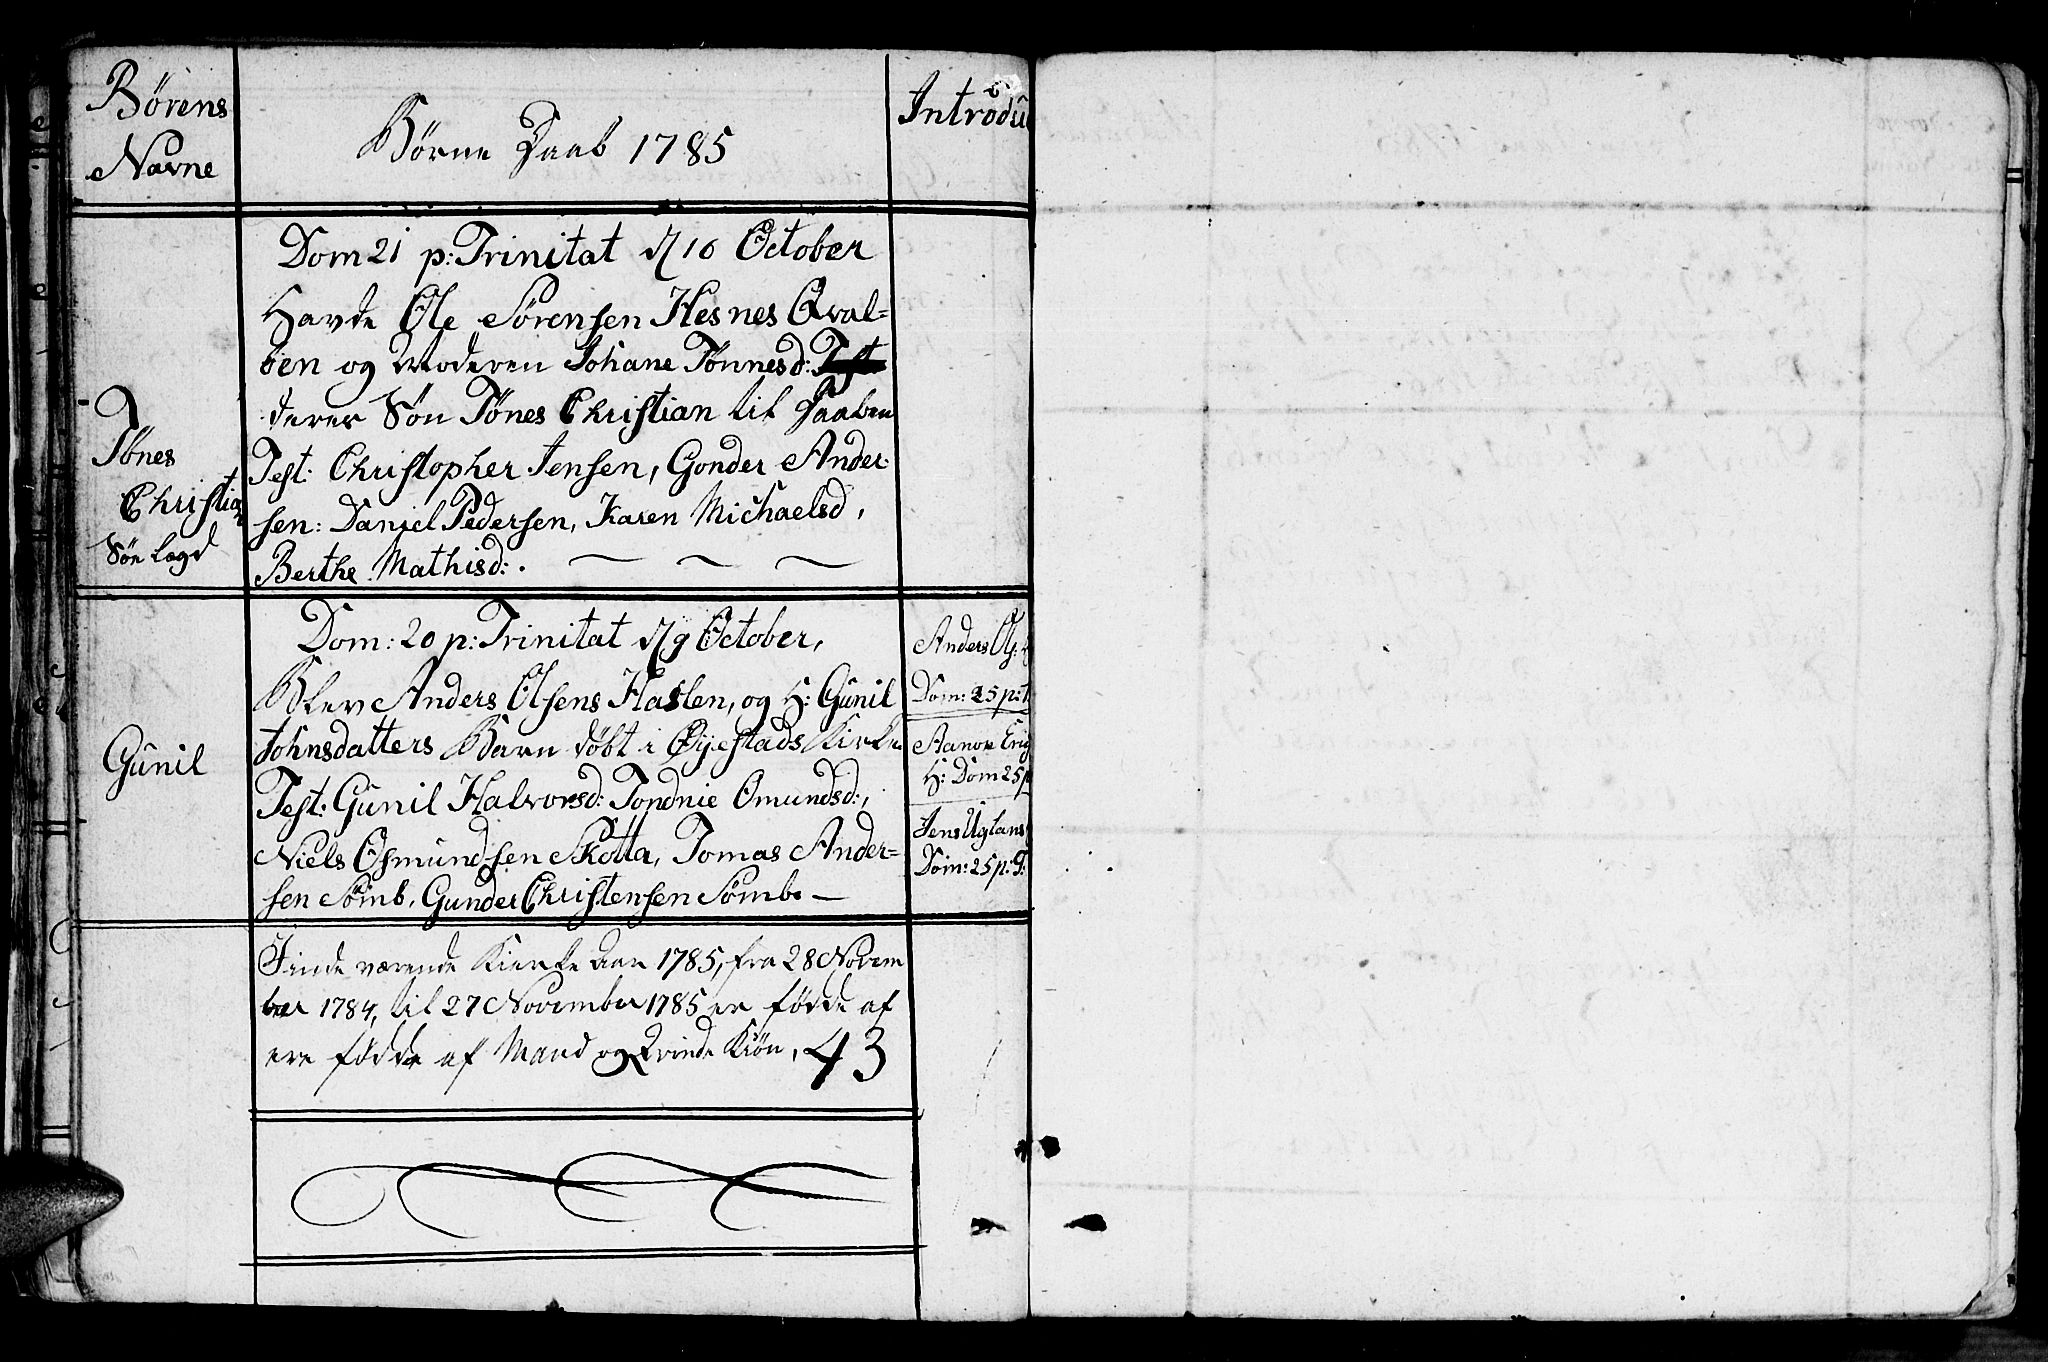 Børens
Navne
Børne Daab 1785
Introdu
Dom 21 p: Trinitat d/16 October
Havde Ole Sørensen Hesnes Qval=
øen og Moderen Johane Tønnesd: Test
deres Søn Tønes Christian til Daaben
Test: Christopher Jensen, Gonder Ander-
sen: Daniel Pedersen, Karen Michaelsd,
Berthe Mathisd:.
Tønes
Christian
Søe Lægd
Dom: 20 p: Trinitat d/9 October,
Blev Anders Olsens Haslen, og H: Gunil
Johnsdatters Barn døbt i Øyestads Kirke
Test: Gunil Halvorsd: Tondnie Omundsd:,
Niels Osmundsen Skotta, Tomas Ander=
sen Sømb, Gunder Christensen Sømb. —
Gunil
Anders Ols:
Dom: 25 p: T
Aanon Erig
H: Dom 25 p
Jens Uglans
Dom: 25 p: T:
I inde værende Kierke Aar 1785, fra 28 Novem
ber 1784, til 27 November 1785 er fødde af
ere fødde af Mand og Qvinde Kiøn, 43